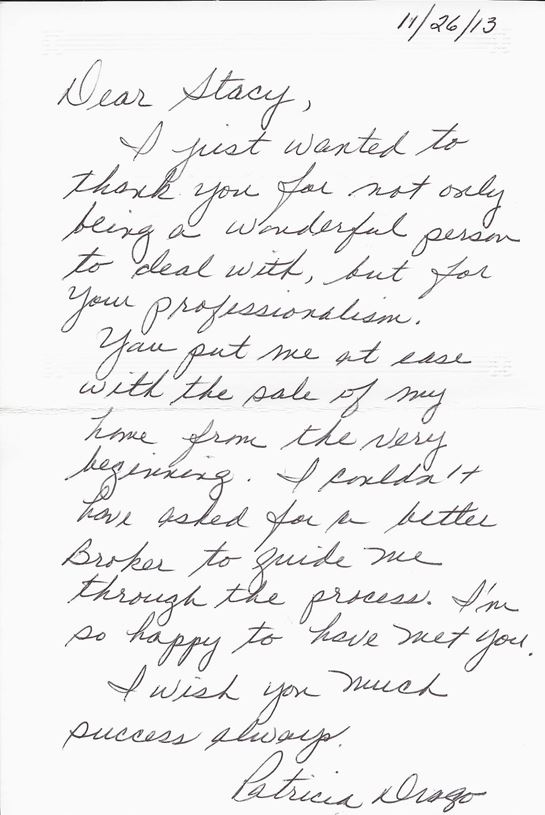 11/26/13
Dear Stacy,
I just wanted to
thank you for not only
being a wonderful person
to deal with, but for
your professionalism.
You put me at ease
with the sale of my
home from the very
beginning. I couldn't
have asked for a better
Broker to guide me
through the process. I'm
so happy to have met you.
I wish you much
success always.
Patricia Drago